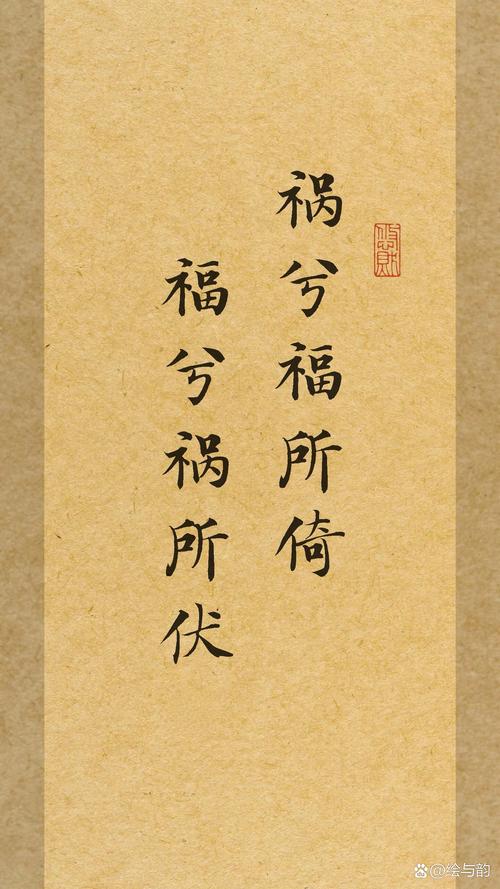 祸兮福所倚
福兮祸所伏
@绘与韵